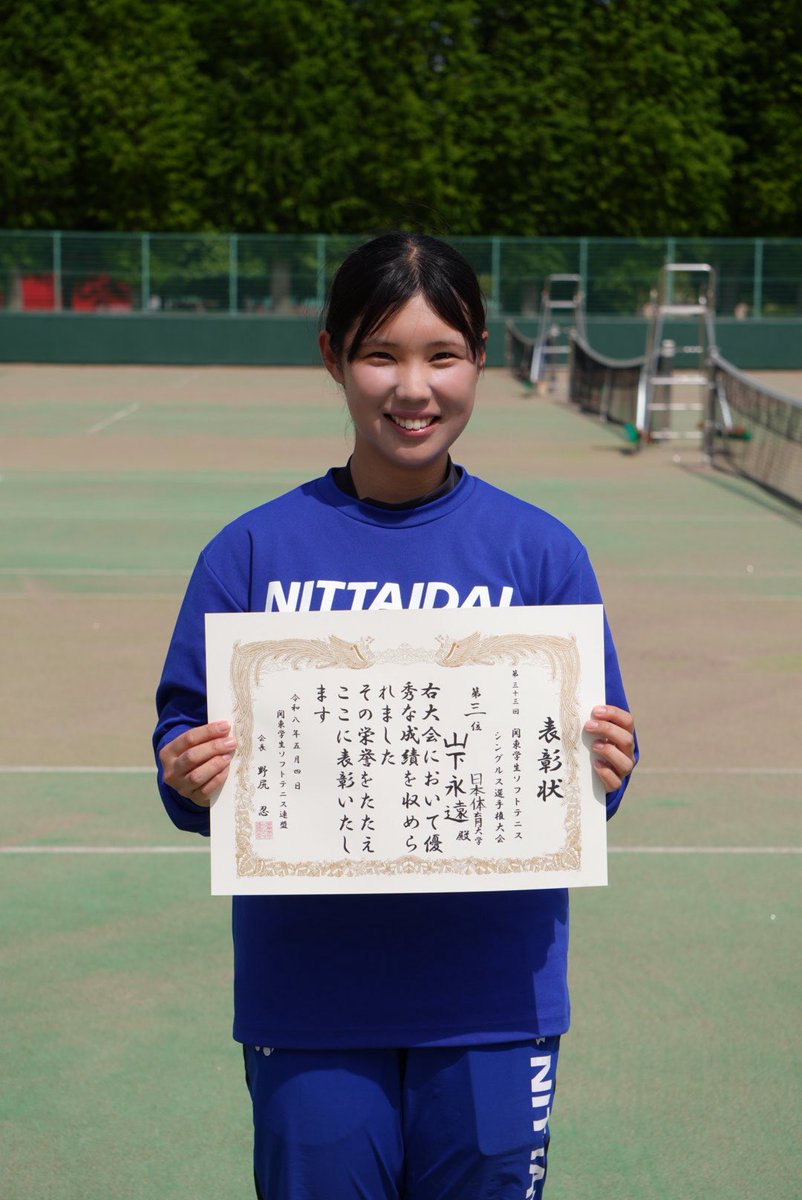 NITTAIDAI
表彰状
第三十三回 関東学生ソフトテニス
シングルス選手権大会
第三位
日本体育大学
山下永遠 殿
右大会において優
秀な成績を収めら
れました
その栄誉をたたえ
ここに表彰いたし
ます
令和八年五月四日
関東学生ソフトテニス連盟
会長 野尻 忍
NITTA